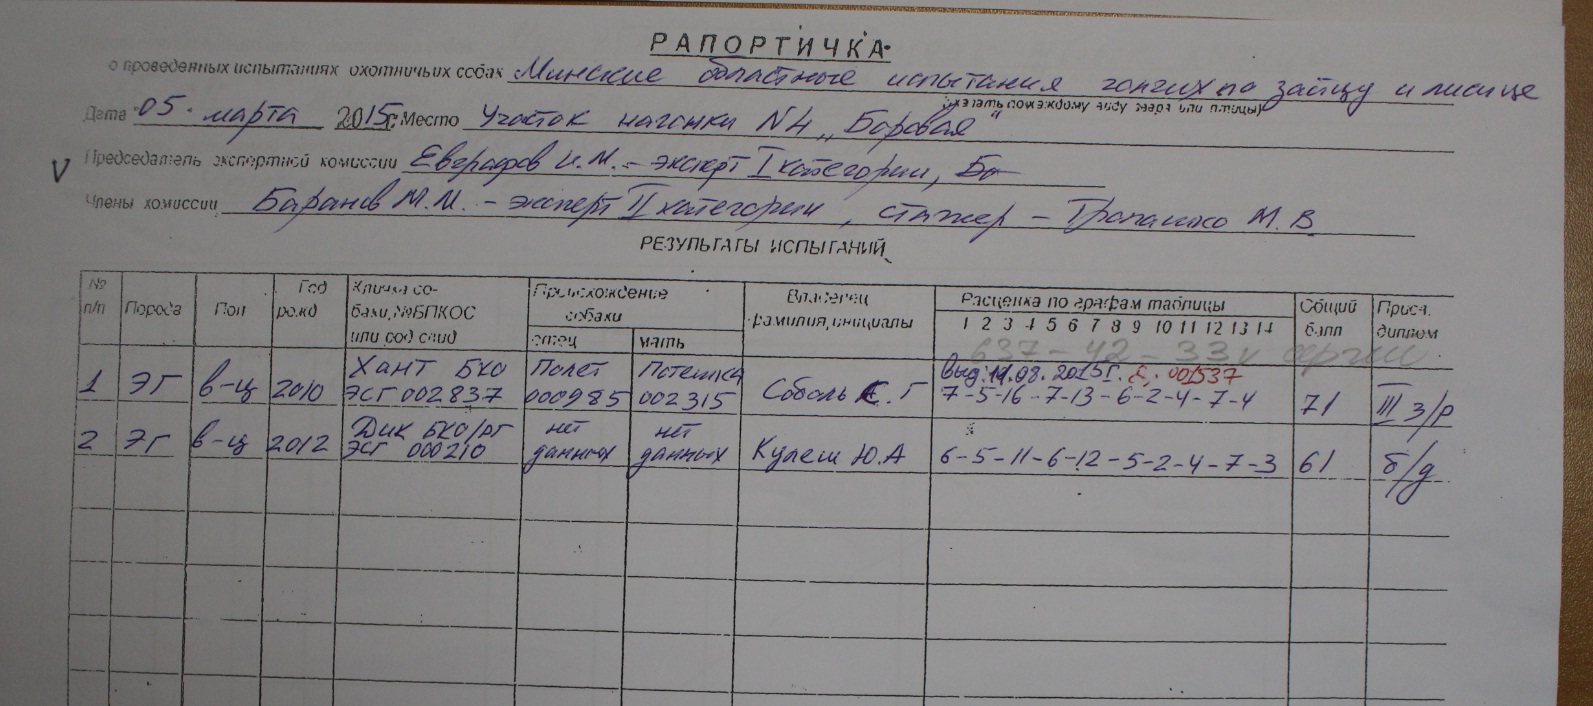 РАПОРТИЧКА
о проведенных испытаниях охотничьих собак Минские областные испытания гончих по зайцу и лисице
(указать по каждому виду зверя или птицы)
Дата 05. марта 2015г. Место Участок нагонки №4 „Боровая"
V Председатель экспертной комиссии Евграфов И.М. - эксперт I категории,
Члены комиссии Баранов М.И. - эксперт II категории, стажер - М.В.
РЕЗУЛЬТАТЫ ИСПЫТАНИЙ
№ п/п Порода Пол Год рожд Кличка собаки, №БПКОС или род свид Происхождение собаки отец мать Владелец фамилия, инициалы Расценка по графам таблицы 1 2 3 4 5 6 7 8 9 10 11 12 13 14 Общий балл Присв. диплом
637-42-33
Выд. 11.08.2015г. 001537
1 ЭГ в-ц 2010 Хант БКО ЭСГ 002837 Полет 000985 Потешка 002315 Соболь Г 7-5-16-7-13-6-2-4-7-4 71 III з/р
2 ЭГ в-ц 2012 Дик БКО/рг ЭСГ 000210 нет данных нет данных Кулеш Ю.А 6-5-11-6-12-5-2-4-7-3 61 б/д